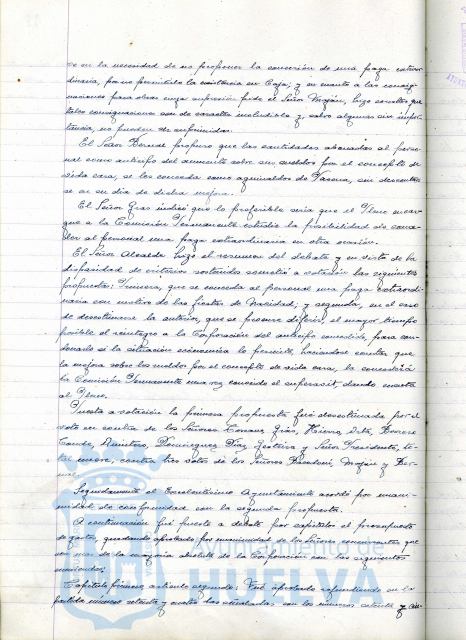 se en la necesidad de no proponer la concesión de una paga extraor-
dinaria, por no permitirlo la existencia en Caja; y en cuanto a las consig-
naciones para obras cuya supresión pide el Señor Moján, hizo constar que
tales consignaciones son de caracter ineludible y, salvo alguna sin impor-
tancia, no pueden ser suprimidas.
El Señor Bernal propuso que las cantidades abonadas al perso-
nal como anticipo del aumento sobre sus sueldos por el concepto de
vida cara, se les conceda como aguinaldos de Pascua, sin descontár-
se en su día de dicha mejora.
El Señor Gras indicó que lo preferible seria que el Pleno encar-
gue a la Comisión Permanente estudie la posibilidad de conce-
der al personal una paga extraordinaria en otra ocasión.
El Señor Alcalde hizo el resumen del debate y en vista de la
disparidad de criterios sostenidos sometió a votación las siguientes
propuestas: Primera, que se conceda al personal una paga extraordi-
naria con motivo de las fiestas de Navidad; y segunda, en el caso
de desestimarse la anterior, que se procure diferir el mayor tiempo
posible el reintegro a la Corporación del anticipo concedido, para con-
donarlo si la situación económica lo permite, haciendose constar que
la mejora sobre los sueldos por el concepto de vida cara, la concederá
la Comisión Permanente una vez conocido el superavit, dando cuenta
al Pleno.
Puesta a votación la primera propuesta fué desestimada por el
voto en contra de los Señores Gras, Hierro,
Conde, Quintero, Dominguez Díaz, y Señor Presidente, to-
tal nueve, contra tres votos de los Señores Moján y Ber-
nal.
Seguidamente el Excelentisimo Ayuntamiento acordó por unani-
midad de conformidad con la segunda propuesta.
A continuación fué puesto a debate por capitulos el presupuesto
de gastos, quedando aprobado por unanimidad de los Señores concurrentes que
son mas de la mayoria absoluta de la Corporación con las siguientes
Capitulo primero articulo segundo: Fué aprobado refundiendo en la
partida número setenta y cuatro las señaladas con los números setenta y cin-
Ayuntamiento de
HUELVA